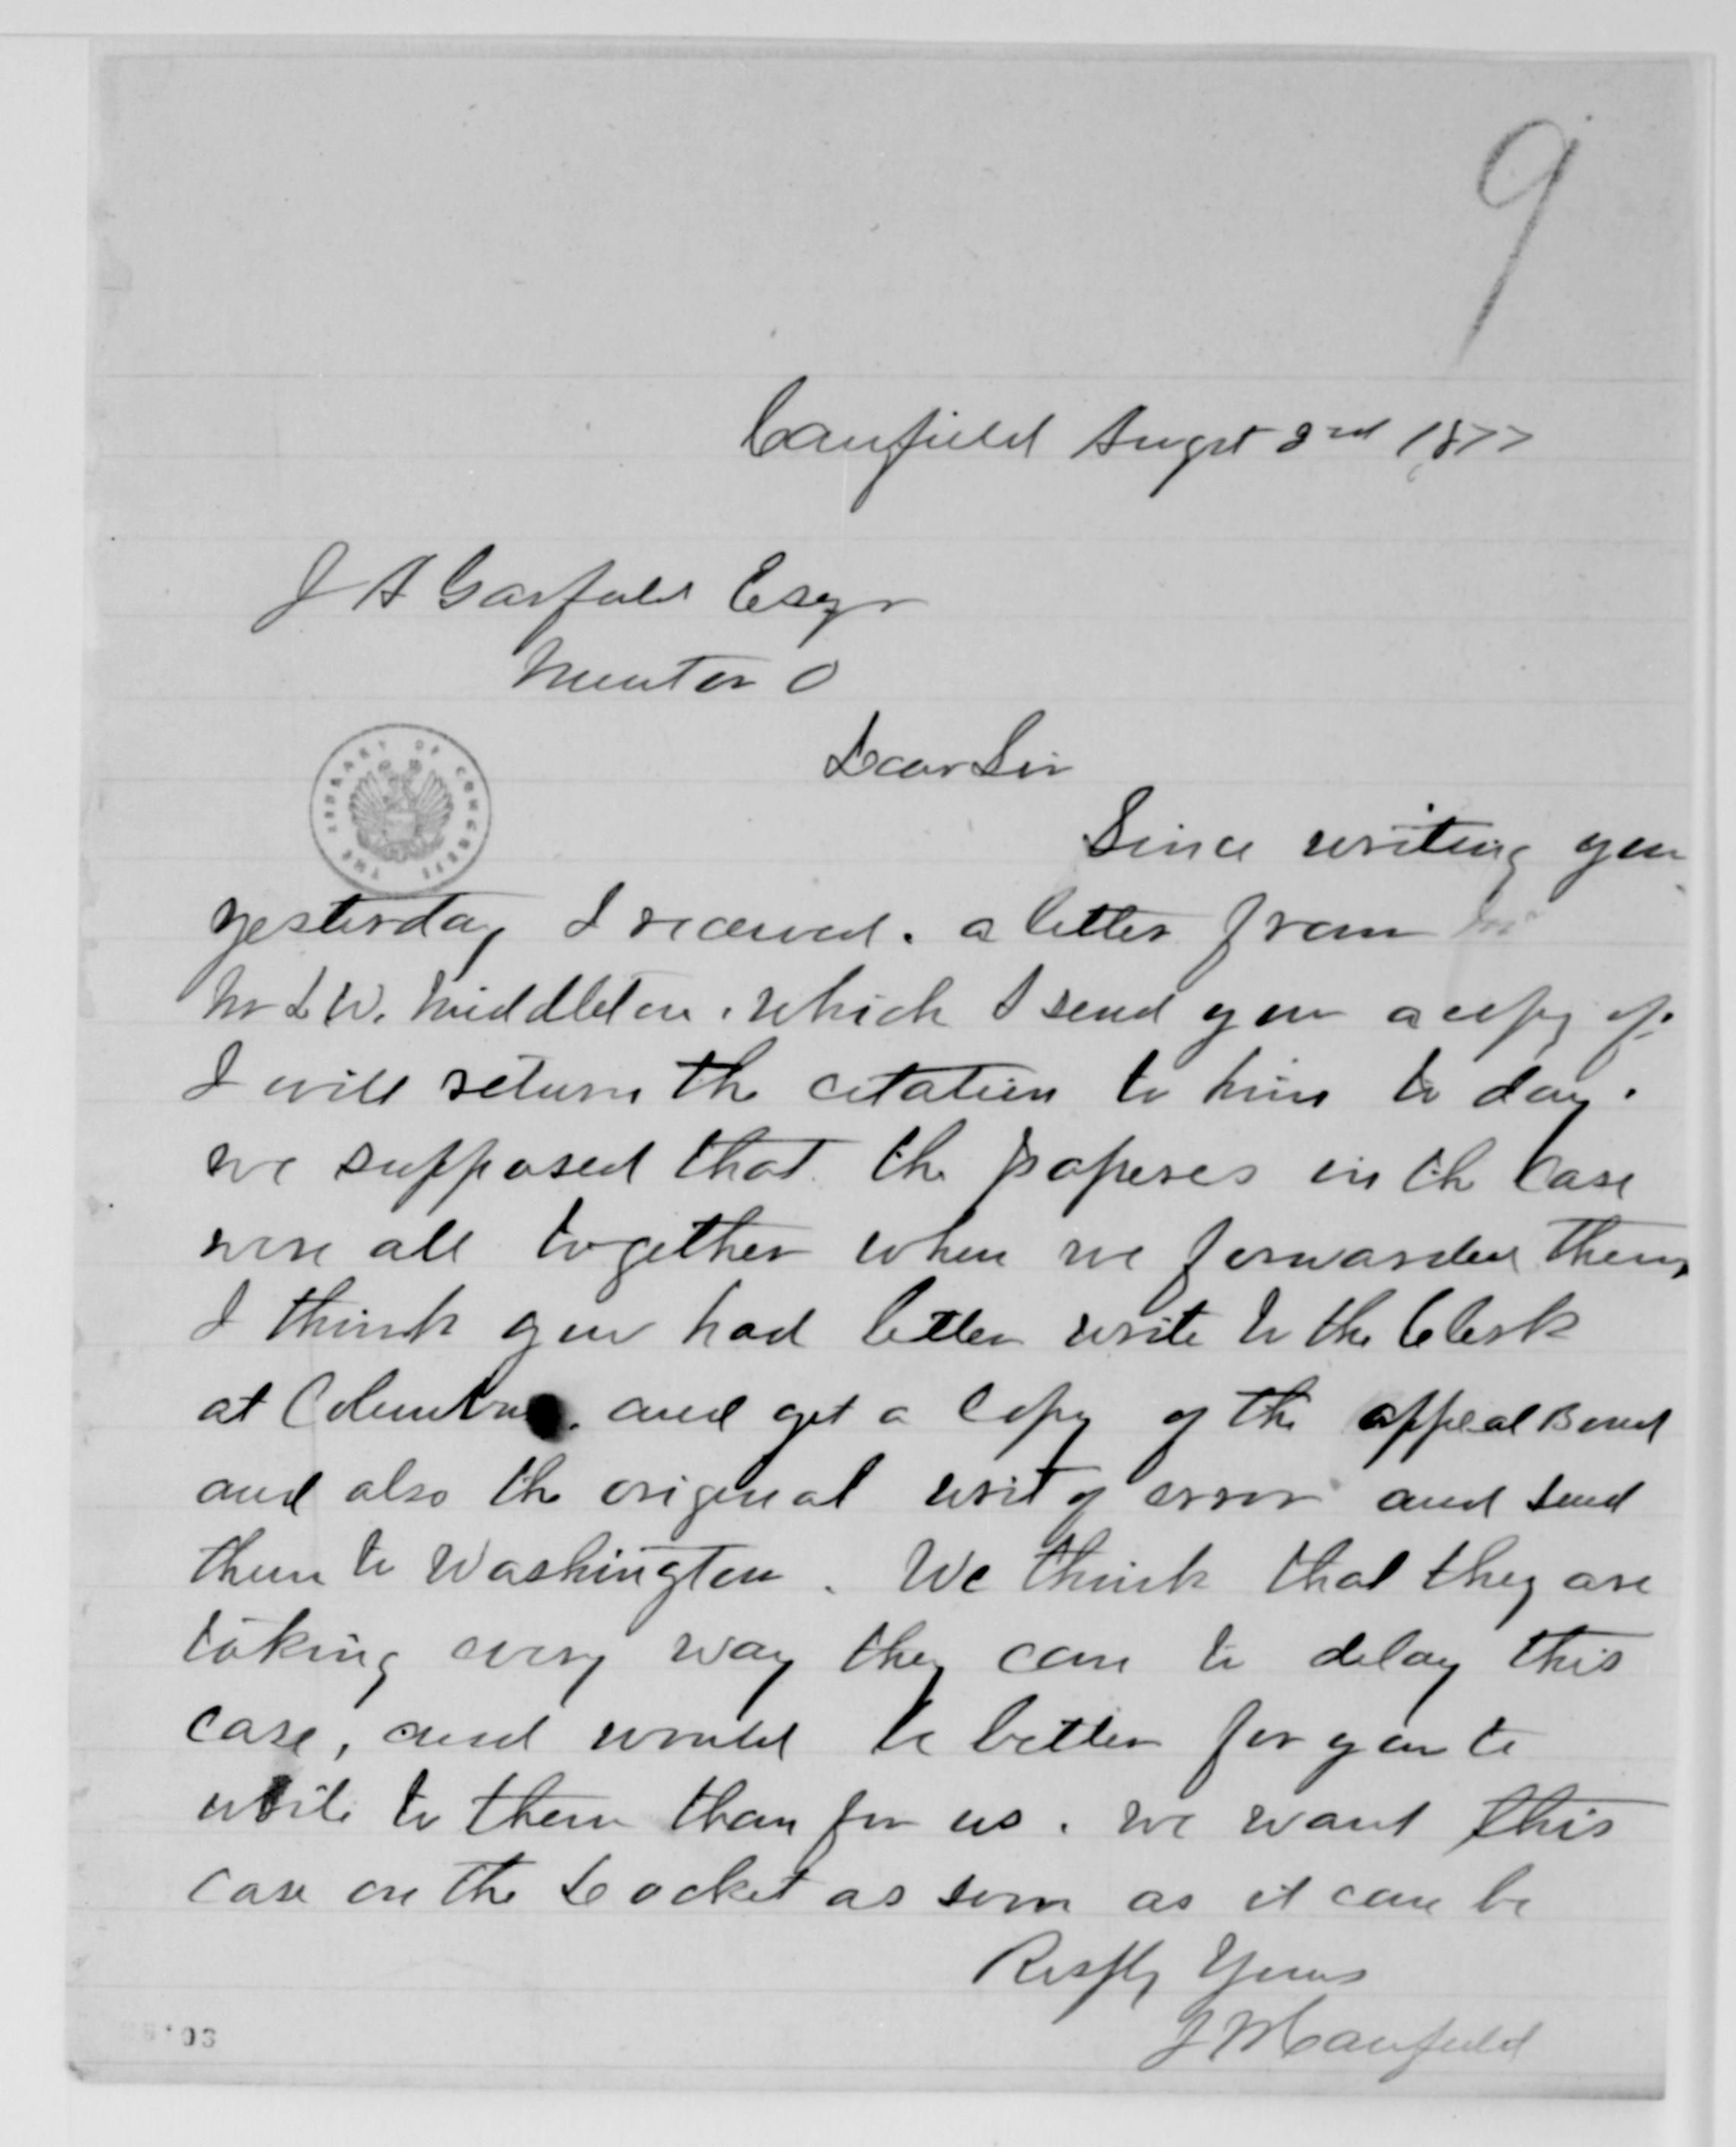 9
Canfield Augst 2nd 1877
J A Garfield Esqr
Mentor O
Dear Sir
Since writing you
yesterday I received . a letter from
Mr D W. Middleton . which I send you a copy of.
I will return the citation to him to day .
we supposed that the paperes in the Case
were all together when we forwarded them,
I think you had better write to the Clerk
at Columbus. and get a Copy of the appeal Bond
and also the original writ of error and send
them to Washington . We think that they are
taking every way they can to delay this
case, and would be better for you to
write to them than for us . we want this
case on the Docket as soon as it can be
Respfly Yours
J M Canfield
THE LIBRARY OF CONGRESS